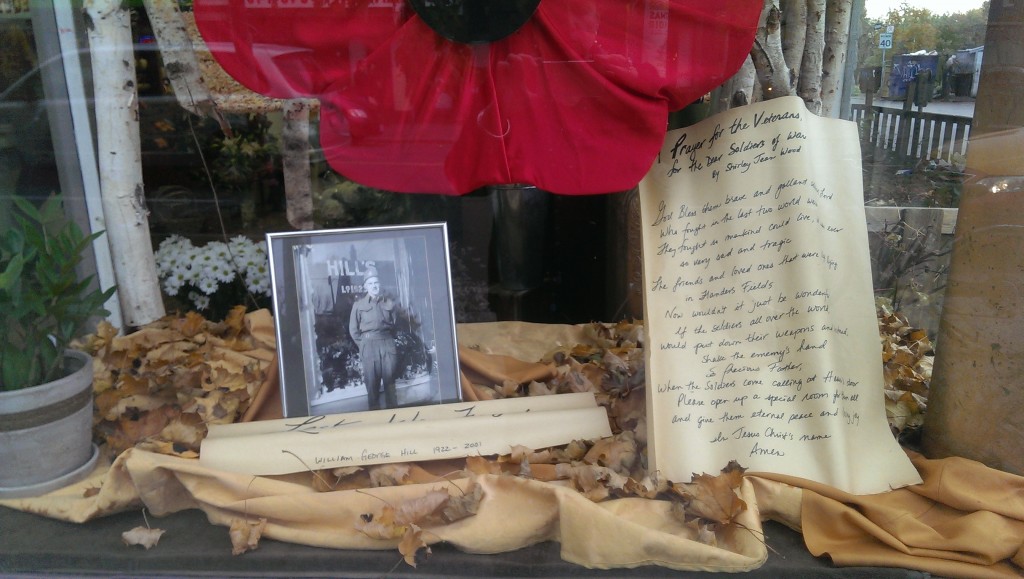 40
HILL'S
Prayer for the Veterans,
for the Dear Soldiers of war
By Shirley Jean Wood
God Bless them brave and gallant
Who fought in the last two world wars
They fought so mankind could live,
so very sad and tragic
The friends and loved ones that were
in Flanders Fields
Now wouldn't it just be wonderful
If the soldiers all over the world
would put down their weapons and
Shake the enemy's hand
So precious Father,
When the Soldiers come calling at Heaven's door
Please open up a special room for them all
and give them eternal peace and
In Jesus Christ's name
Amen
WILLIAM GEORGE HILL 1922-2001